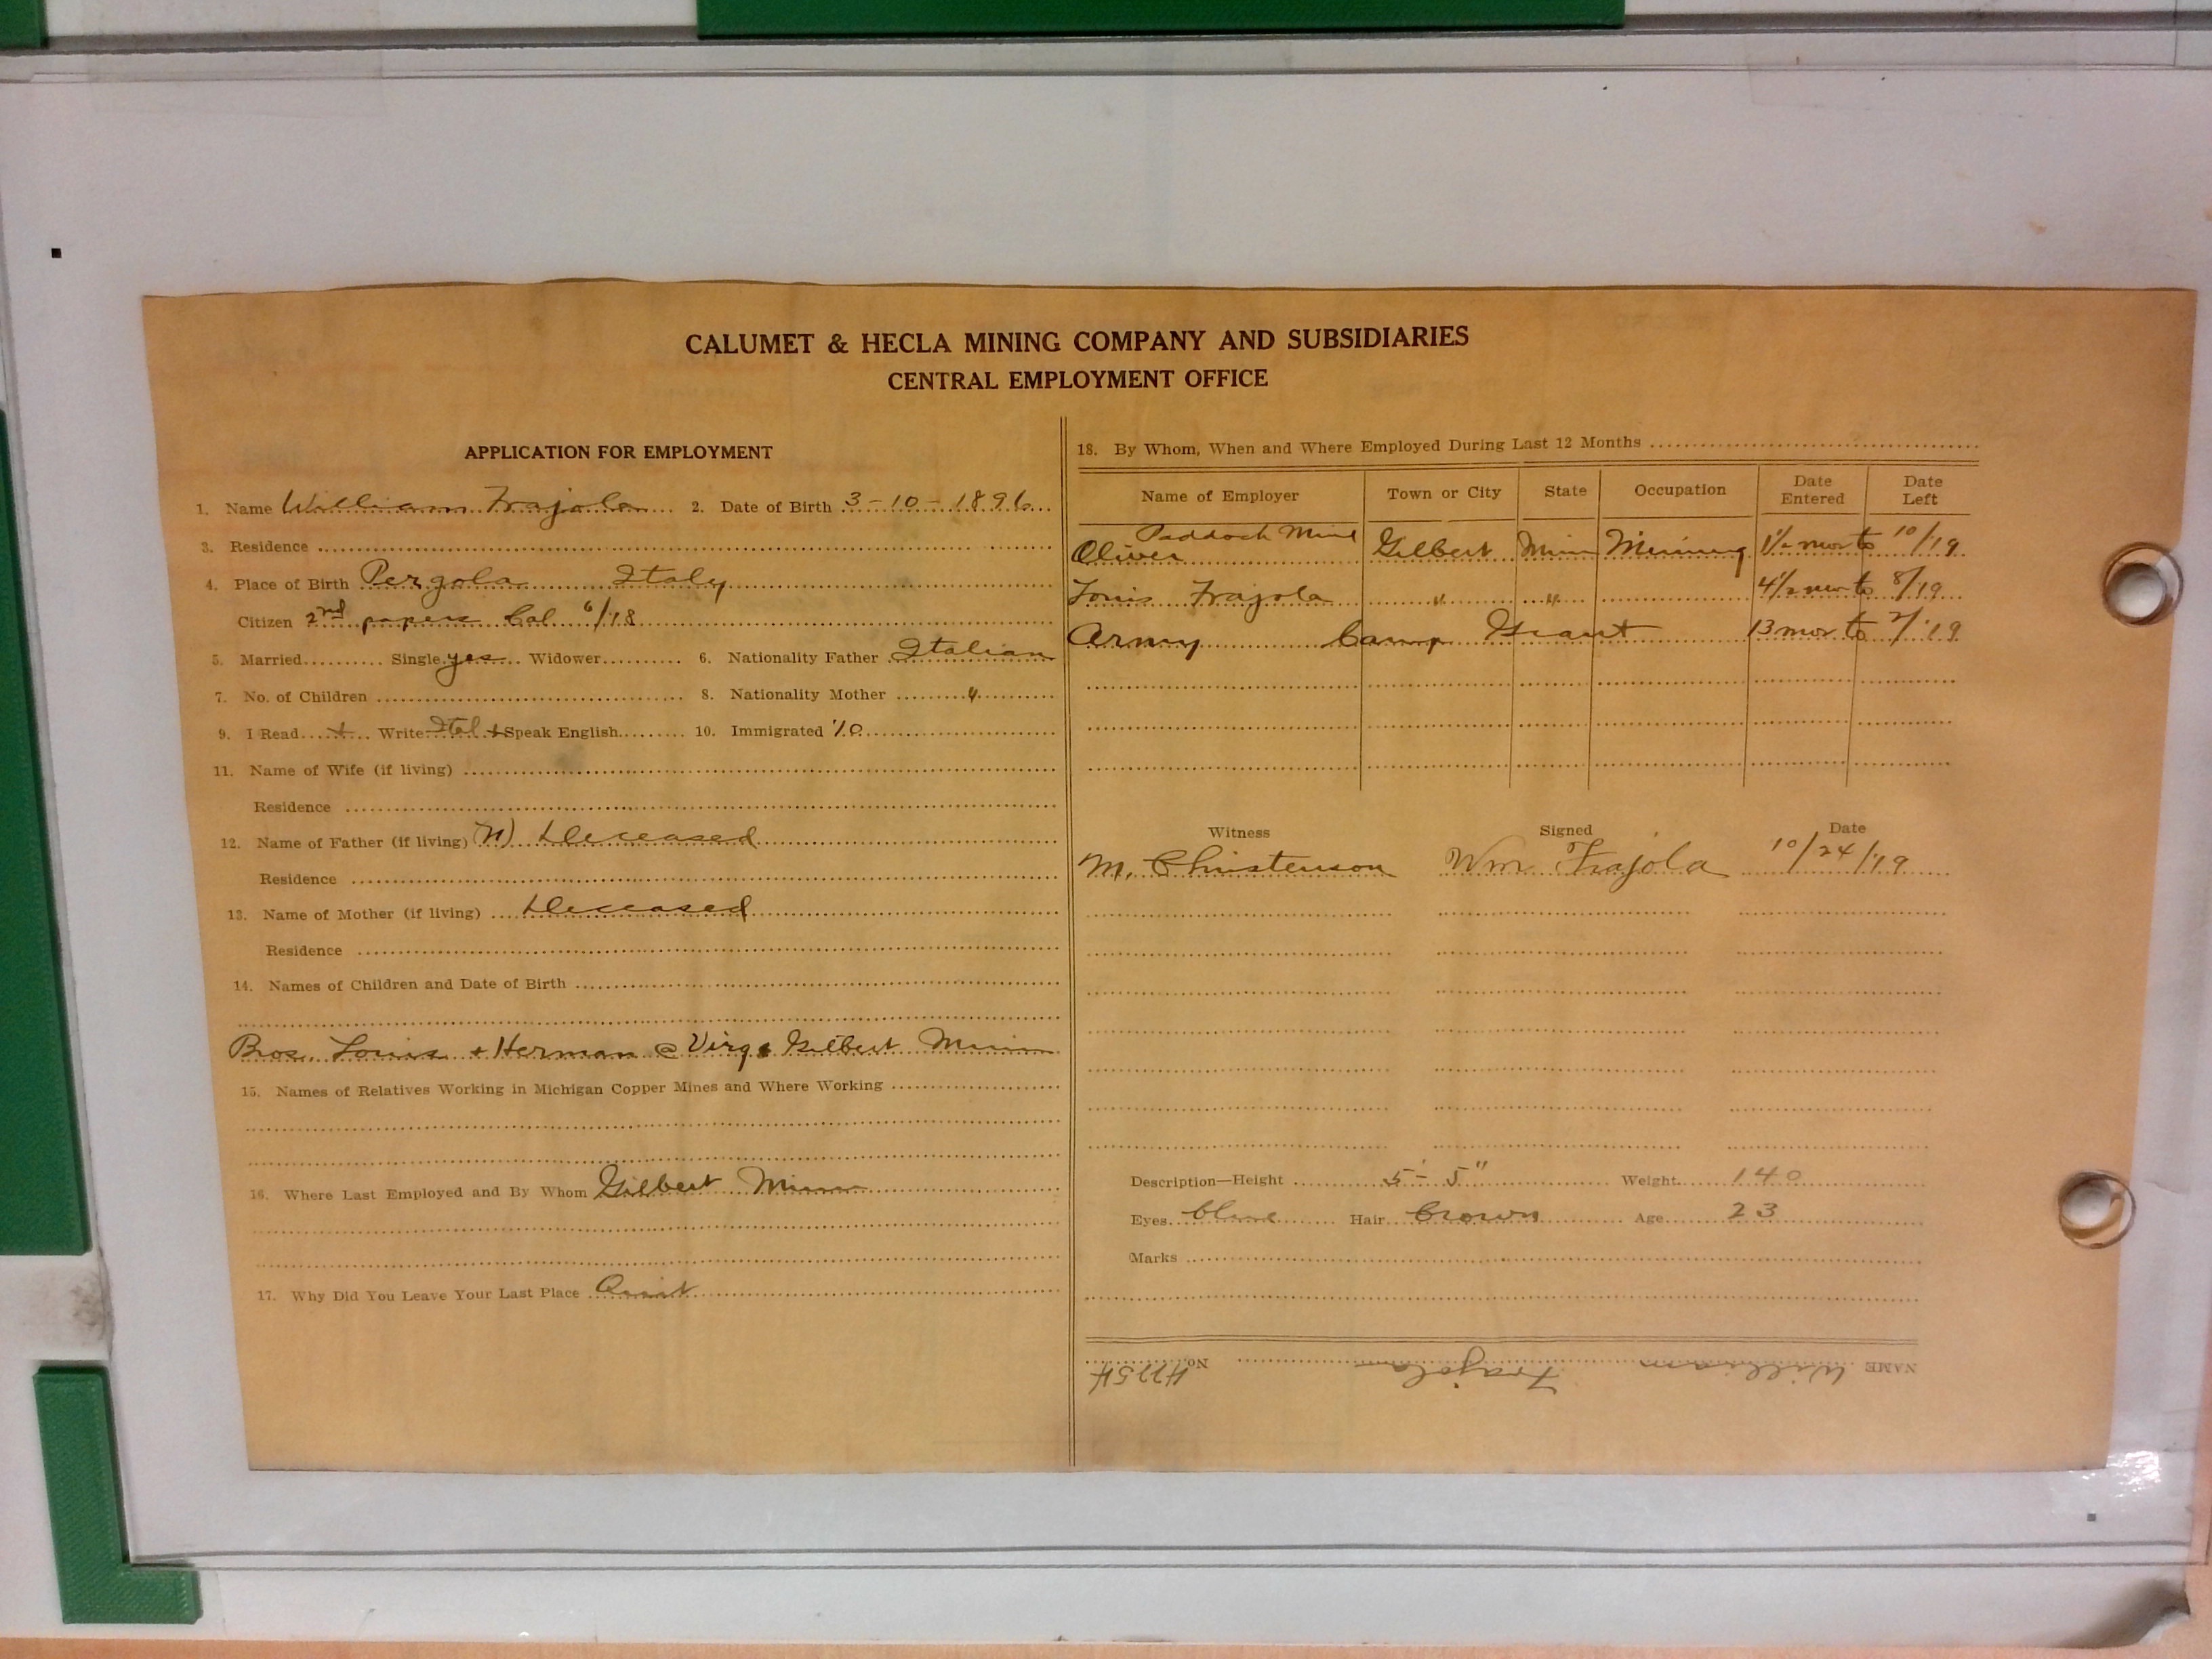 CALUMET & HECLA MINING COMPANY AND SUBSIDIARIES
CENTRAL EMPLOYMENT OFFICE
APPLICATION FOR EMPLOYMENT
1. Name William Frajola 2. Date of Birth 3-10-1896
3. Residence
4. Place of Birth Pergola Italy
Citizen 2nd papers Cal 6/18
5. Married Single yes Widower 6. Nationality Father Italian
7. No. of Children 8. Nationality Mother "
9. I Read + Write Ital + Speak English 10. Immigrated '10
11. Name of Wife (if living)
Residence
12. Name of Father (if living) Deceased
Residence
13. Name of Mother (if living) Deceased
Residence
14. Names of Children and Date of Birth
Bros. Louis + Herman @ Virg Gilbert Minn
15. Names of Relatives Working in Michigan Copper Mines and Where Working
16. Where Last Employed and By Whom Gilbert Minn
17. Why Did You Leave Your Last Place Quit
18. By Whom, When and Where Employed During Last 12 Months
Name of Employer Town or City State Occupation Date Entered Date Left
Paddock Mine
Oliver Gilbert Minn Mining 1½ mos to 10/19
Louis Frajola " " 4½ mos to 8/19
Army Camp Grant 13 mos to 2/'19
Witness Signed Date
M. Christenson Wm Frajola 10/24/19
Description—Height 5'-5" Weight 140
Eyes blue Hair Brown Age 23
Marks
NAME William Frajola No. 47754